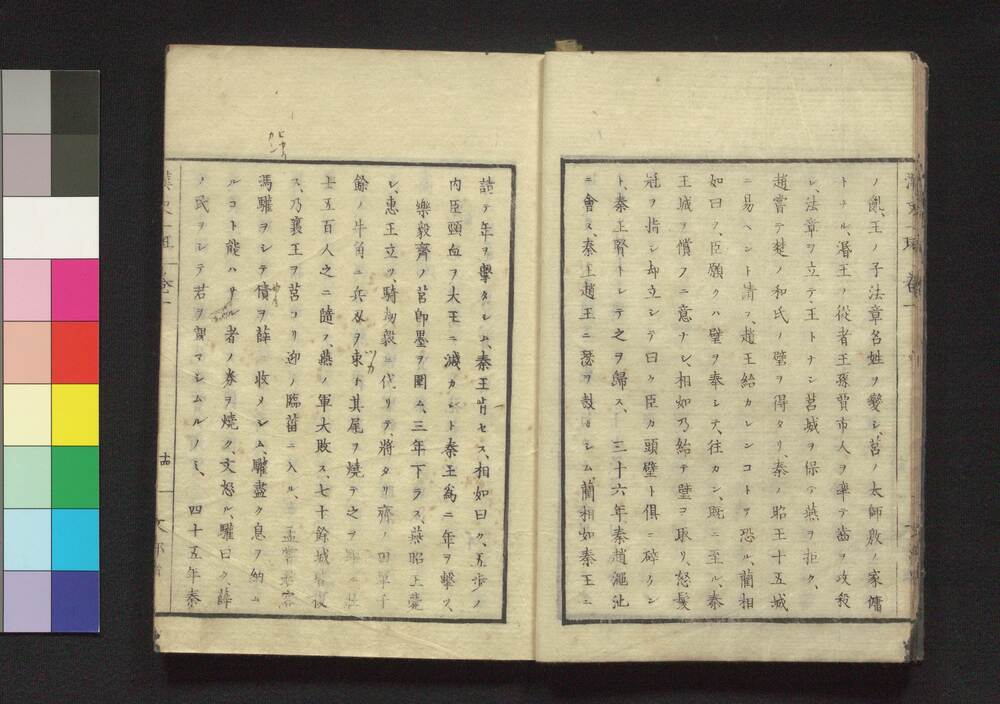 ノ亂、王ノ子法章名姓ヲ變シ、莒ノ太師敫ノ家傭
トナル、湣王ノ從者王孫賈市人ヲ率テ齒ヲ攻殺
シ、法章ヲ立テ王トナシ莒城ヲ保テ燕ヲ拒ク、
趙嘗テ楚ノ和氏ノ璧ヲ得タリ、秦ノ昭王十五城
ニ易ヘント請フ、趙王給カレンコトヲ恐ル、藺相
如曰ク、臣願クハ璧ヲ奉シテ往カン、既ニ至ル、秦
王城ヲ償フニ意ナシ、相如乃紿テ璧ヲ取リ、怒髮
冠ヲ指シ却立シテ曰ク臣カ頭璧ト俱ニ碎ケン
ト、秦王賢トシテ之ヲ歸ス、 三十六年秦趙澠池
ニ會ス、秦王趙王ニ瑟ヲ鼓セシム藺相如秦王ニ
請テ缶ヲ擊タシム、秦王肯セス、相如曰ク、五步ノ
内臣頸血ヲ大王ニ濺カント秦王爲ニ一タヒ缶ヲ擊ス、
樂毅齊ノ莒即墨ヲ圍ム、三年下ラス、燕昭王薨
シ、惠王立ツ、騎劫毅ニ代リテ將タリ齊ノ田單千
餘ノ牛角ニ兵刃ヲ束ト其尾ヲ燒テ之ヲ
士五百人之ニ隨フ、燕ノ軍大敗ス、七十餘城皆復
ス、乃襄王ヲ莒ヨリ迎ノ臨菑ニ入ル、 孟嘗君客
馮驩ヲシテ債ヲ薛ニ收メシム、驩盡ク息ヲ納ム
ルコト能ハサル者ノ券ヲ燒ク、文怒ル、驩曰ク、薛
ノ民ヲシテ君ヲ親マシムルノミ、 四十五年秦
十四